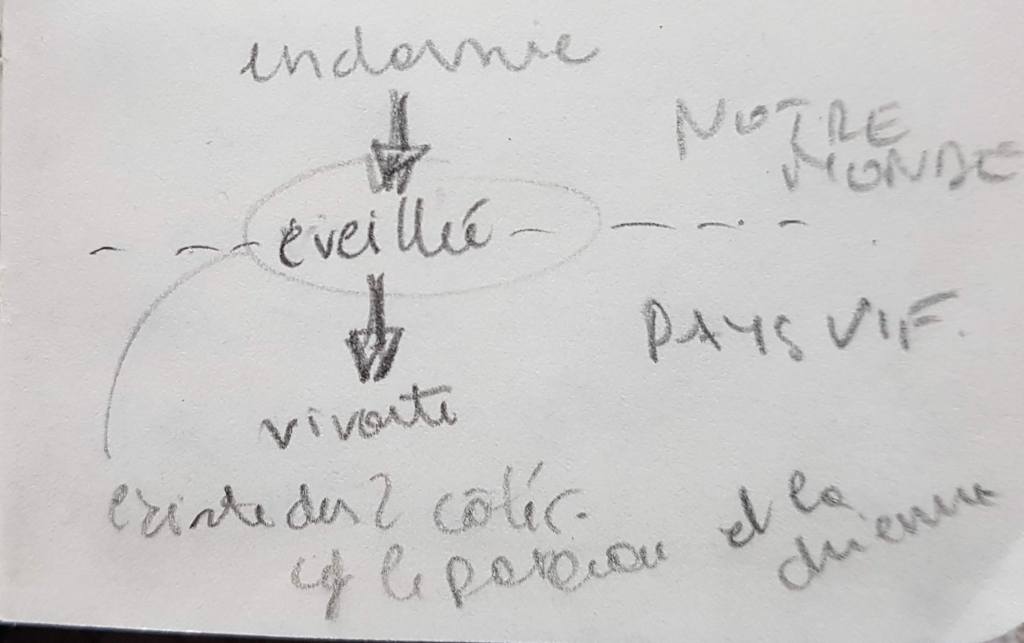 endormie
NOTRE
MONDE
éveillée
PAYS VIF.
vivante
existe des 2 côtés.
cf le et la
chienne